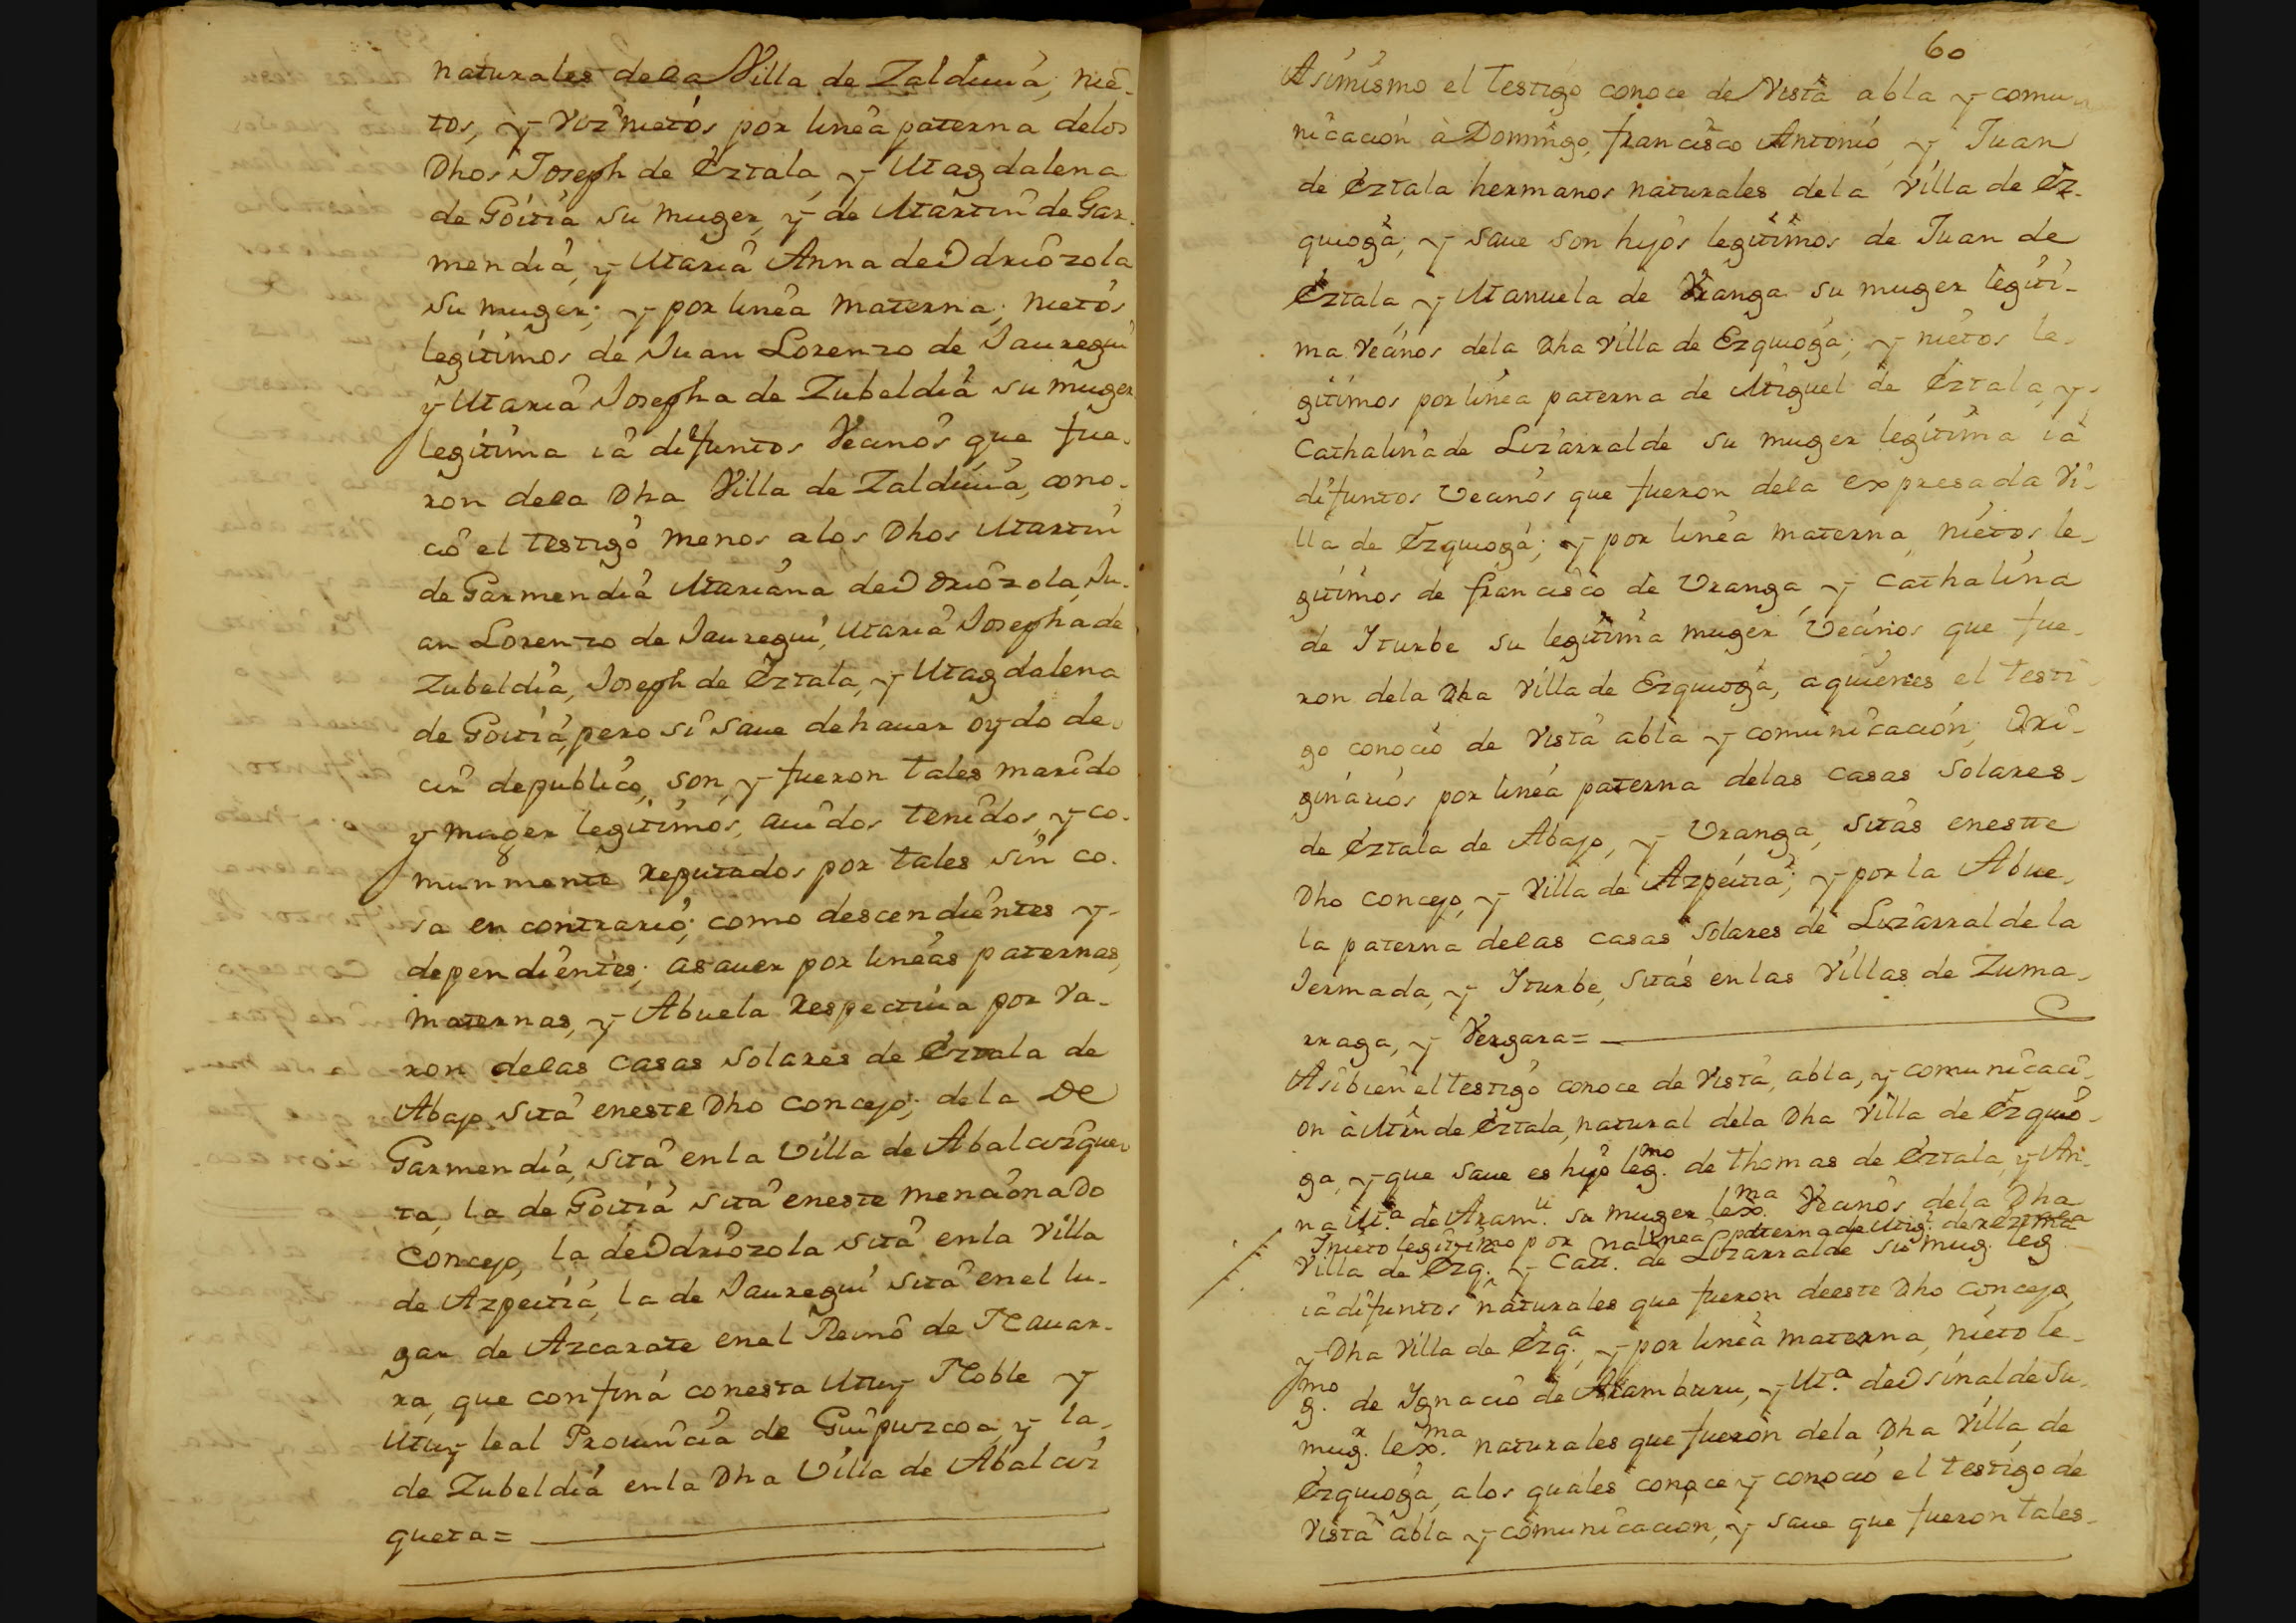 naturales dela Villa de Zalduuia, nie-
tos, y viznietos por linea paterna delos
Dhos Joseph de Eztala y Magdalena
de Goitia su muger, y de Martin de Gar-
mendia, y Maria Anna de Odriozola
su muger; y por linea materna, nietos
legitimos de Juan Lorenzo de Jauregui
y Maria Josepha de Zubeldia su muger
legitima ia difuntos Vecinos que fue-
ron dela Dha Villa de Zalduuia, cono-
cio el testigo menos alos Dhos Martin
de Garmendia Mariana de Odriozola, Ju-
an Lorenzo de Jauregui, Maria Josepha de
Zubeldia, Joseph de Eztala, y Magdalena
de Goitia, pero si saue de hauer oydo de-
cir depublico, son, y fueron tales marido
y muger legitimos, auidos tenidos, y co-
munmente reputados por tales sin co-
sa en contrario; como descendientes y
dependientes; asauer por lineas paternas,
maternas, y Abuela respectiua por Va-
ron delas casas solares de Eztala de
Abajo sita eneste Dho concejo; dela de
Garmendia, sita en la Villa de Abalcizque-
ta, la de Goitia sita eneste mencionado
Concejo, la de Odriozola sita en la Villa
de Azpeitia, la de Jauregui sita en el lu-
gar de Azcarate en el Reino de Nauar-
ra, que confina conesta Muy Noble y
Muy leal Prouincia de Guipuzcoa, y la
de Zubeldia en la Dha Villa de Abalciz
queta=
60
Asimismo el testigo conoce de Vista abla y comu
nicacion à Domingo, francisco Antonio, y Juan
de Eztala hermanos naturales dela Villa de Ez-
quioga; y saue son hijos legitimos de Juan de
Eztala, y Manuela de Vranga su muger legiti-
ma Vecinos dela Dha Villa de Ezquioga; y nietos le-
gitimos por linea paterna de Miguel de Eztala, y
Cathalina de Lizarralde su muger legitima ia
difuntos Vecinos que fueron dela expresada Vi-
lla de Ezquioga; y por linea materna, nietos le-
gitimos de francisco de Vranga, y Cathalina
de Iturbe su legitima muger Vecinos que fue-
ron dela Dha Villa de Ezquioga, aquienes el testi-
go conocio de Vista abla y comunicacion; Ori-
ginarios por linea paterna delas casas solares
de Eztala de Abajo, y Vranga, sitas enestte
Dho concejo, y Villa de Azpeitia; y por la Abue-
la paterna delas casas solares de Lizarraldela
Iermada, y Iturbe, sitas en las Villas de Zuma-
rraga, y Vergara=
Asibien el testigo conoce de Vista, abla, y comunicaci-
on à Mrn de Eztala, natural dela Dha Villa de Ezquio-
ga, y que saue es hijo leg.mo de Thomas de Eztala, y An-
na M.a de Aram.u su muger lex.ma Vecinos dela Dha
Villa de Ezq.a y Catt. de Lizarralde su mug. leg
ia difuntos naturales que fueron deeste Dho concejo,
y Dha Villa de Ezq.a, y por linea materna, nieto le-
g.mo de Ignacio de Aramburu, y M.a de Osinalde su
mug.r lex.ma naturales que fueron dela Dha Villa de
Ezquioga, alos quales conoce y conocio el testigo de
Vista abla y comunicacion, y saue que fueron tales